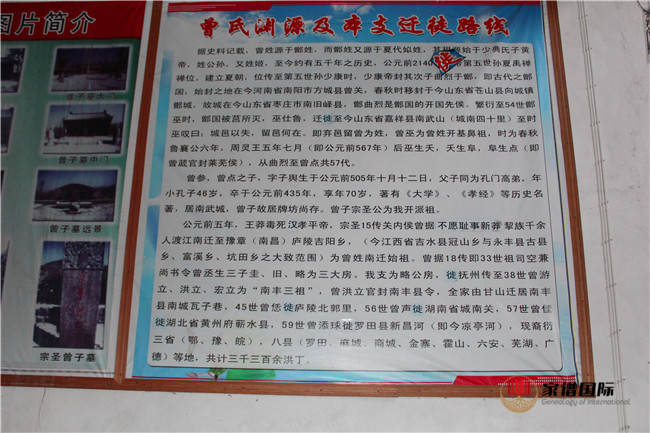 图片简介
曾子墓大门
曾子墓中门
曾子墓远景
宗圣曾子墓
曾氏渊源及本支迁徙路线
据史料记载，曾姓源于鄫姓，而鄫姓又源于夏代姒姓，其根源始于少典氏子黄
帝，姓公孙，又姓姬，至今约有五千年之历史，公元前2140 第五世孙夏禹禅
禅位，建立夏朝，位传至第五世孙少康时，少康帝封其次子曲烈于鄫，即古代之鄫
国，始封之地在今河南省南阳市方城县曾关，春秋时移封于今山东省苍山县向城镇
鄫城，故城在今山东省枣庄市南旧峄县，鄫曲烈是鄫国的开国先侯。繁衍至54世鄫
巫时，鄫国被莒所灭，巫仕鲁，迁徙至今山东省嘉祥县南武山（城南四十里）至时
巫叹曰：城邑以失，留邑何在。即弃邑留曾为姓，曾巫为曾姓开基鼻祖，时为春秋
鲁襄公六年，周灵王五年七月（即公元前567年）后巫生夭，夭生阜，阜生点（即
曾蒧官封莱芜侯），从曲烈至曾点共57代。
曾参，曾点之子，字子舆生于公元前505年十月十二日，父子同为孔门高弟，年
小孔子46岁，卒于公元前435年，享年70岁，著有《大学》、《孝经》等历史名
著，居南武城，曾子故居牌坊尚存。曾子宗圣公为我开派祖。
公元前五年，王莽毒死汉孝平帝，宗圣15传关内侯曾据不愿耻事新莽挈族千余
人渡江南迁至豫章（南昌）庐陵吉阳乡，（今江西省吉水县冠山乡与永丰县古县
乡、富溪乡、坑田乡之大致范围）为曾姓南迁始祖。曾据18传即33世祖司空兼
尚书令曾丞生三子圭、旧、略为三大房。我支为略公房，徙抚州传至38世曾游
立、洪立、宏立为“南丰三祖”，曾洪立官封南丰县令，全家由甘山迁居南丰
县南城瓦子巷，45世曾恁徙庐陵北郭里，56世曾声徙湖南省城南关，57世曾佳
徙湖北省黄州府蕲水县，59世曾添球徙罗田县新昌河（即今凉亭河），现裔衍
三省（鄂、豫、皖），八县（罗田、麻城、商城、金寨、霍山、六安、芜湖、广
德）等地，共计三千三百余洪丁。
家谱国际
Genealogy of International